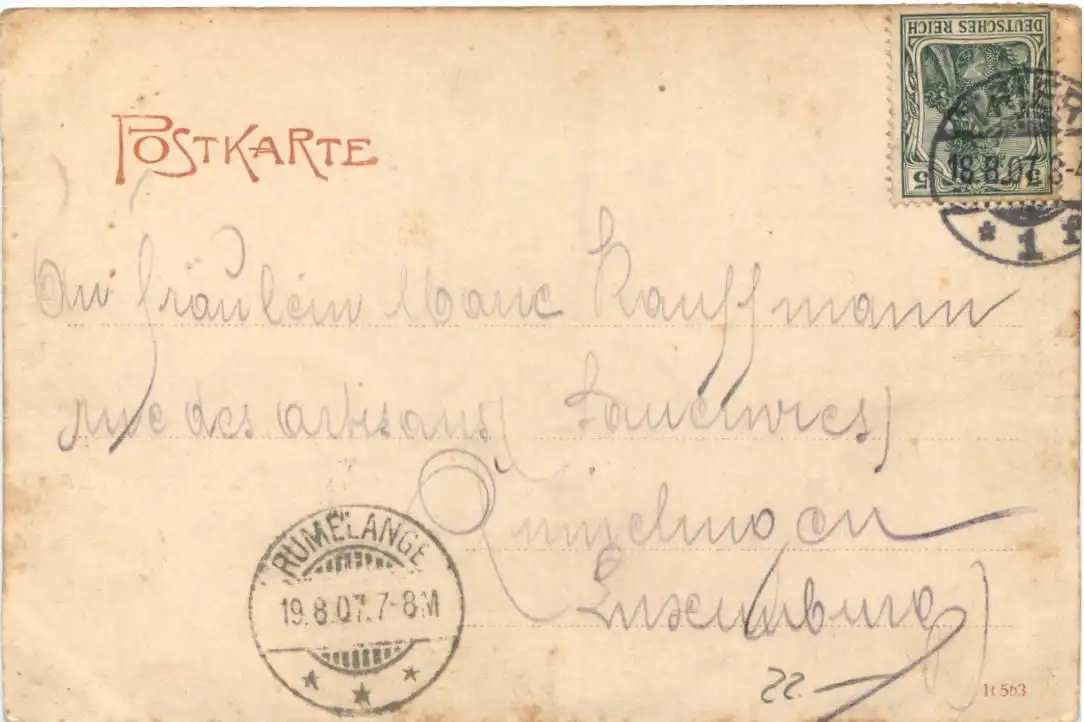 POSTKARTE
DEUTSCHES REICH
5 5
TRIER
18.8.07. 3-4
* 1 f
An Fräulein Marie Kauffmann
rue des artisans (Lauerwies)
Rümelingen
Luxemburg)
RUMELANGE
19.8.07. 7-8M
22.